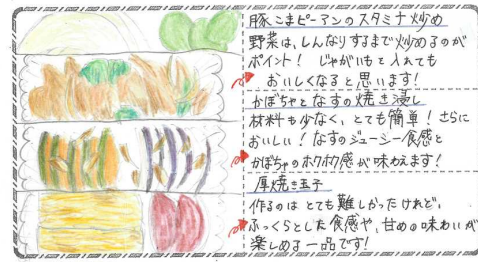 豚こまピーマンのスタミナ炒め
野菜は、しんなりするまで炒めるのが
ポイント! じゃがいもと入れても
おいしくなると思います!
かぼちゃとなすの焼き浸し
材料も少なく、とても簡単!さらに
おいしい!なすのジューシー食感と
かぼちゃのホクホク感が味わえます!
厚焼き玉子
作るのはとても難しかったけれど、
ふっくらとした食感や、甘めの味わいが
楽しめる一品です!